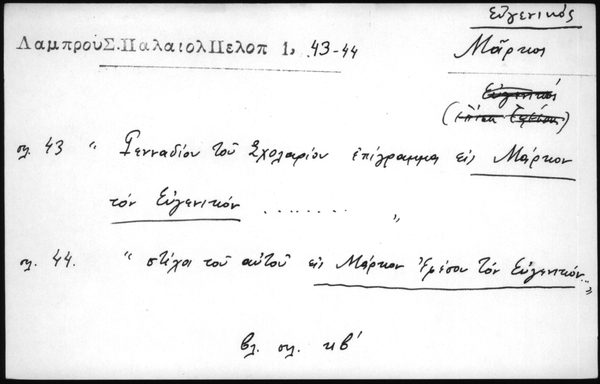 Εὐγενικός
ΛαμπροῦΣ.ΠαλαιολΠελοπ 1, 43-44
Μᾶρκος
σγ. 43 " Γενναδίου τοῦ Σχολαρίου ἐπίγραμμα εἰς Μάρκον
τόν Εὐγενικόν ........ "
σγ. 44. " στίχοι τοῦ αὐτοῦ εἰς Μάρκον Ἐφέσου τόν Εὐγενικόν..."
βλ. σγ. κβ'